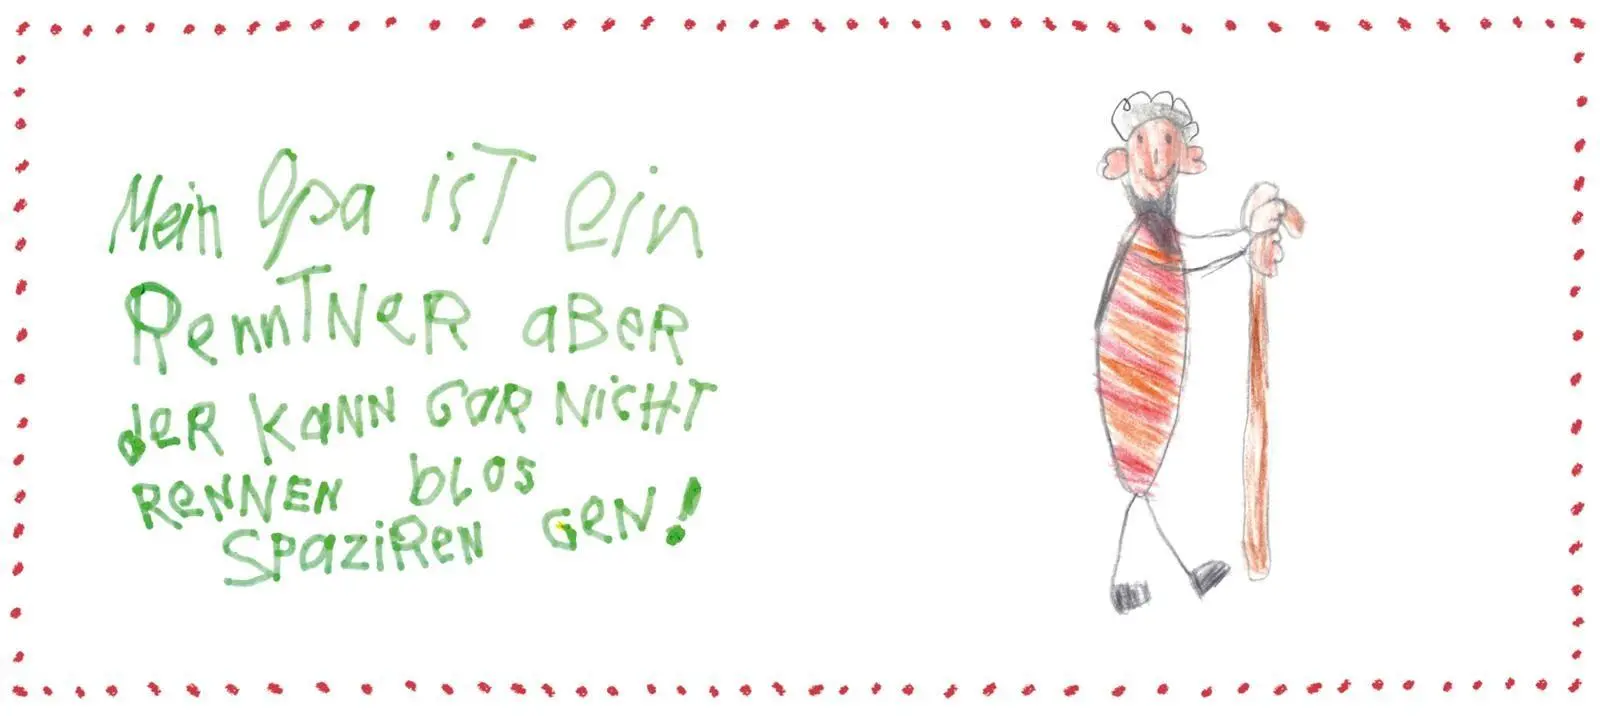 Mein Opa isT ein
RennTNeR aBeR
deR KaNN GaR NicHT
ReNNEN blos
SpaziReN GeN!